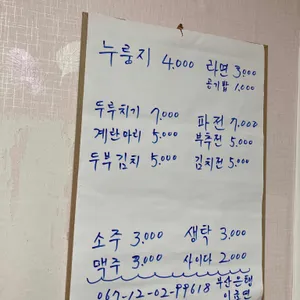 누룽지 4,000 라면 3,000
공기밥 1,000
두루치기 7,000 파전 7,000
계란마리 5,000 부추전 5,000
두부김치 5,000 김치전 5,000
소주 3,000 생탁 3,000
맥주 3,000 사이다 2,000
067-12-02-99618 부산은행